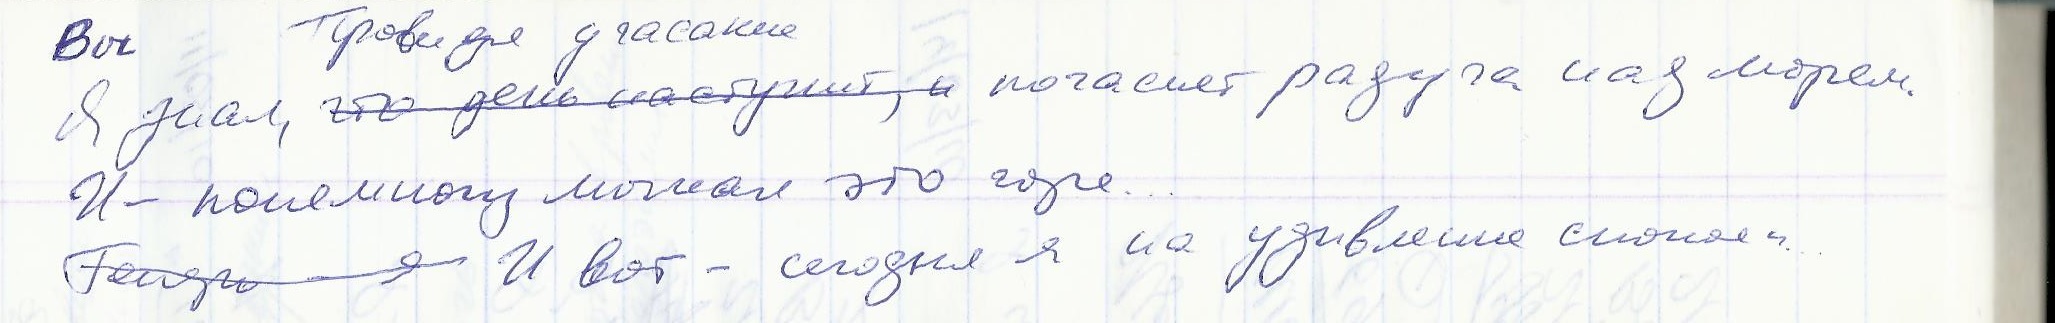 Вы Провидя угасание
Я знал, что день наступит, и погаснет радуга над морем.
И – понемногу мыкал это горе...
Теперь я И вот – сегодня я на удивление спокоен...